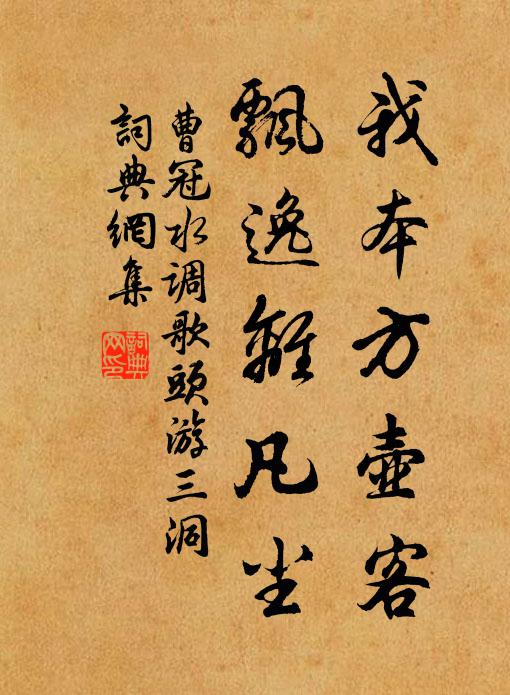 我本方壶客
飘逸離凡尘
曹冠水调歌頭游三洞
詞典網集
詞典
网印